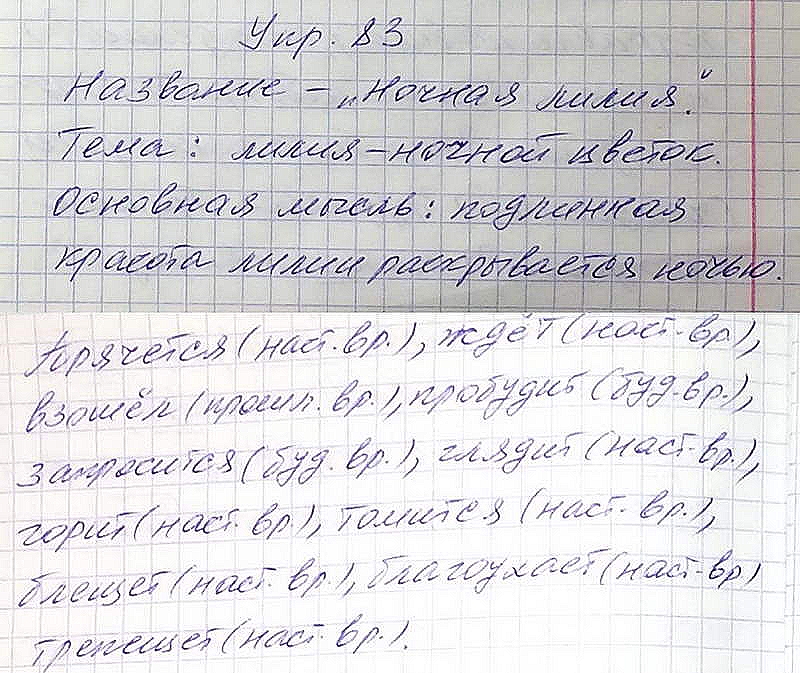 Укр. 83
Название – „Ночная лилия".
Тема: лилия – ночной цветок.
Основная мысль: подлинная
красота лилии раскрывается ночью.
(наст. вр.), ждёт (наст. вр),
взошёл (прошл. вр.), пробудит (буд. вр.),
запросится (буд. вр.), глядит (наст. вр),
горит (наст. вр), томится (наст. вр.),
блещет (наст. вр.), благоухает (наст. вр)
трепещет (наст. вр.).